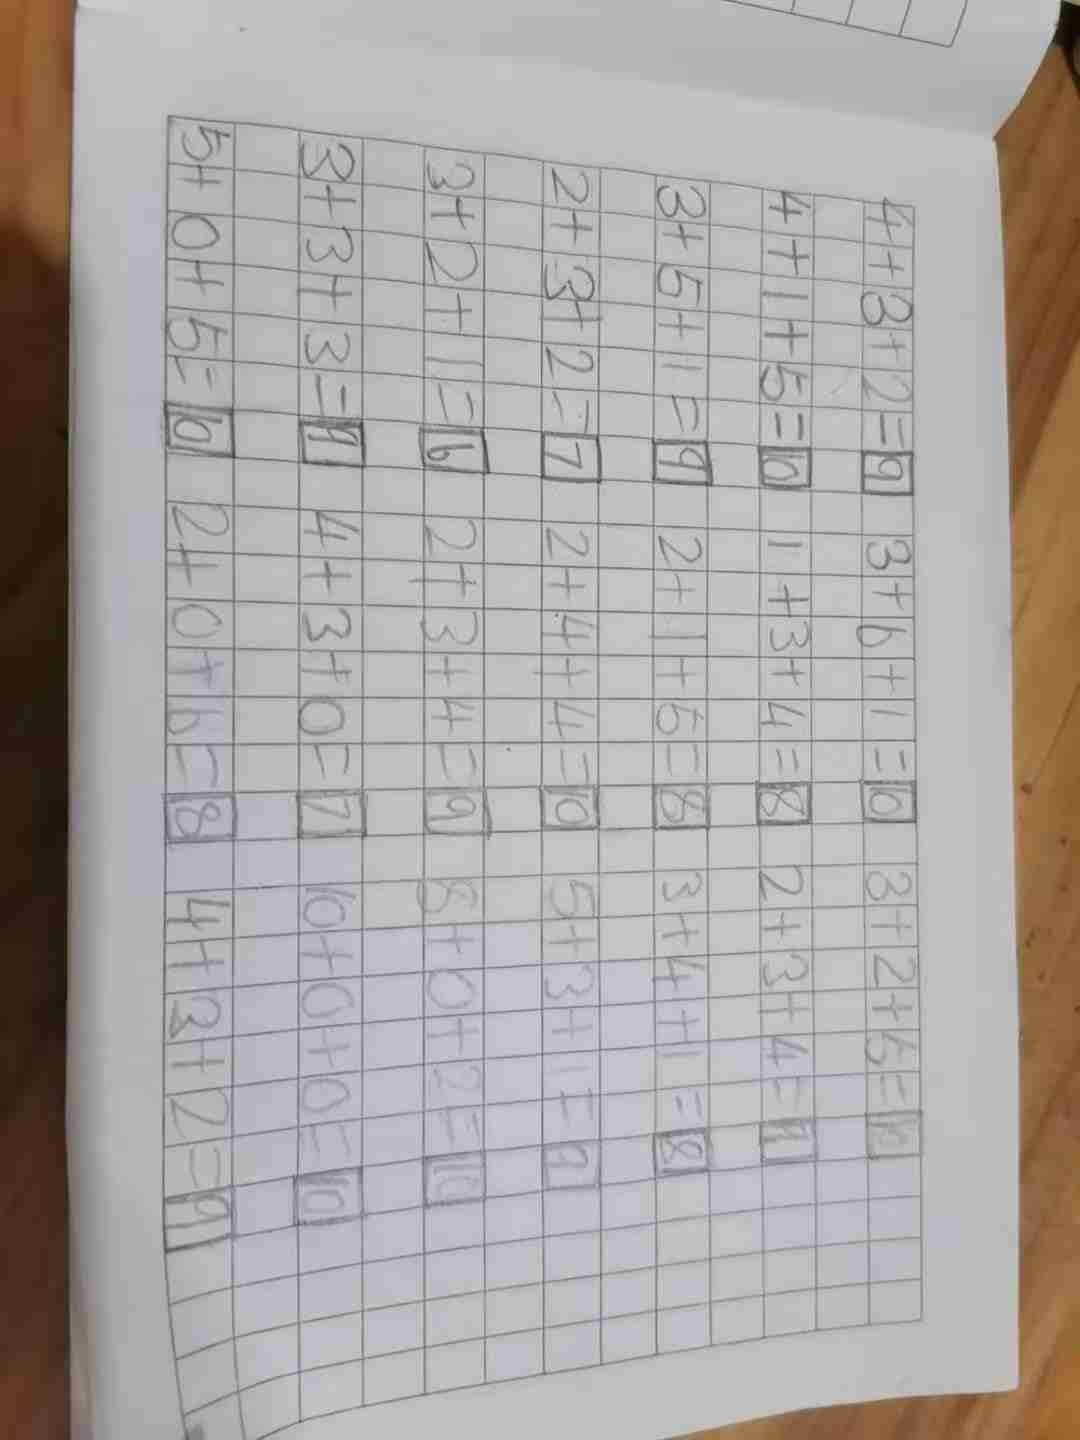 4+3+2=9 3+6+1=10 3+2+5=10
4+1+5=10 1+3+4=8 2+3+4=9
3+5+1=9 2+1+5=8 3+4+1=8
2+3+2=7 2+4+4=10 5+3+1=9
3+2+1=6 2+3+4=9 8+0+2=10
3+3+3=9 4+3+0=7 10+0+0=10
5+0+5=10 2+0+6=8 4+3+2=9